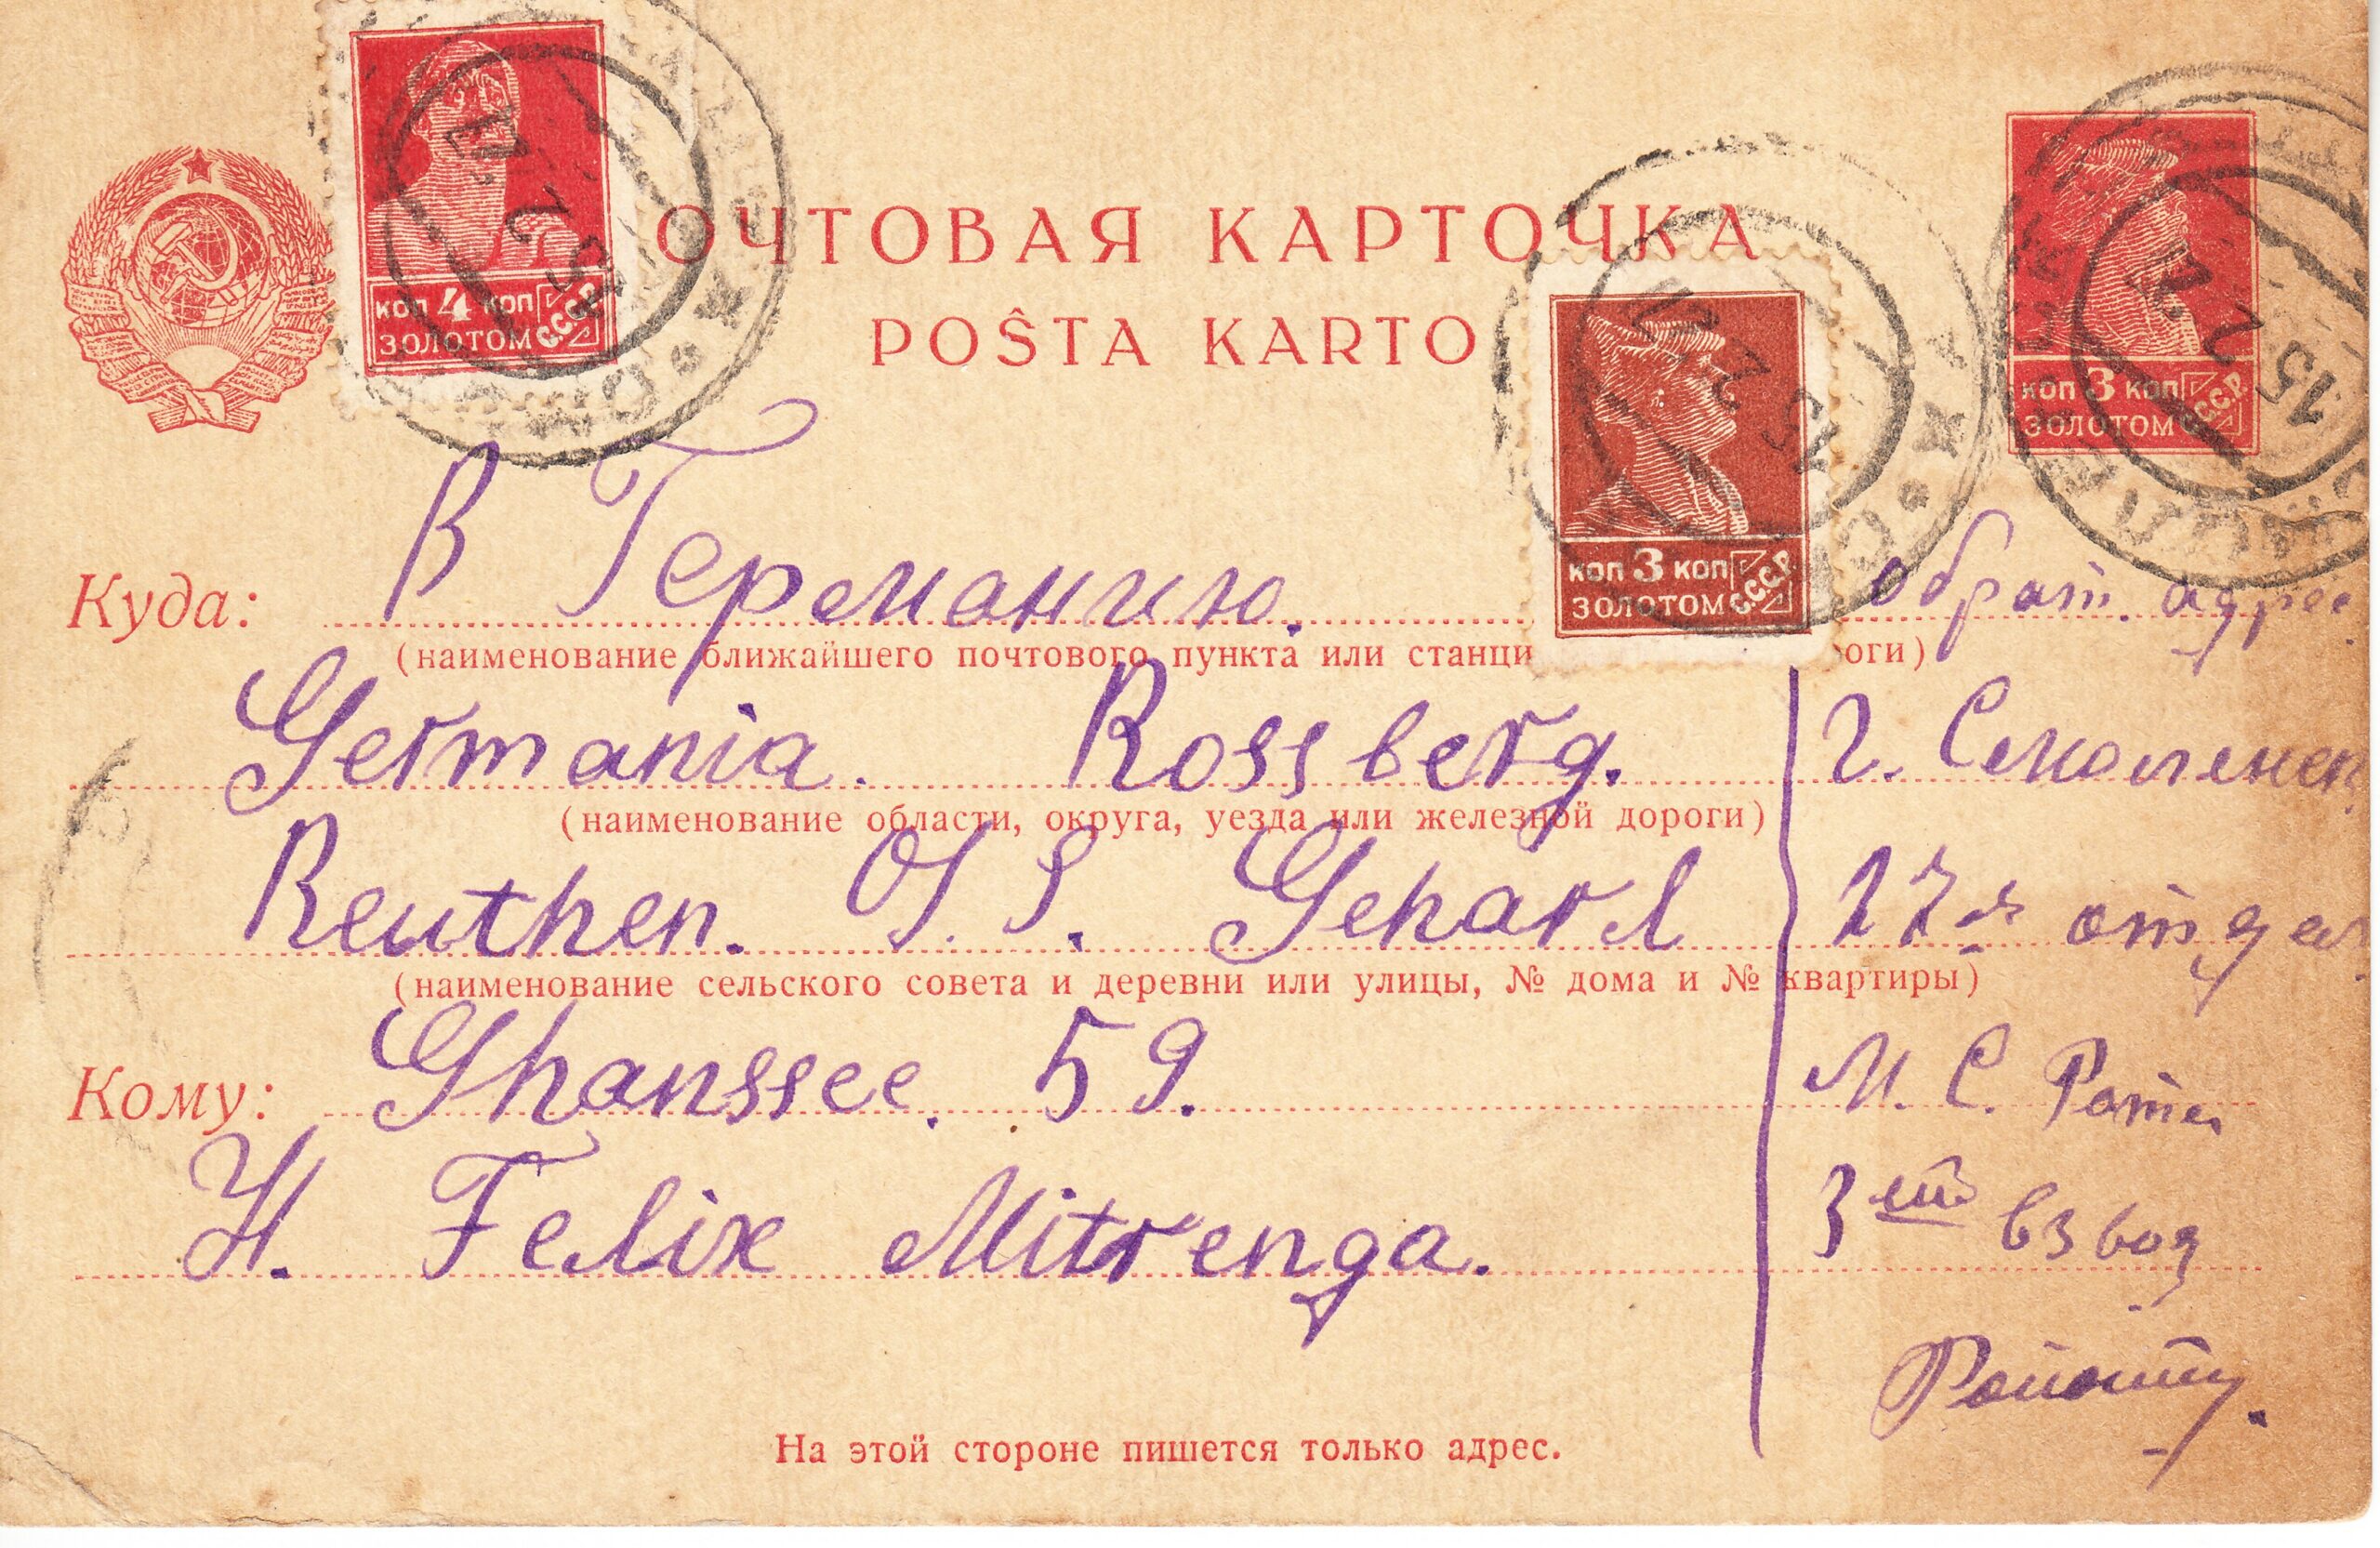 ОЧТОВАЯ КАРТОЧКА
POŜTA KARTO
коп 4 коп
золотом С.С.С.Р.
коп 3 коп
золотом С.С.С.Р.
коп 3 коп
золотом С.С.С.Р.
15 2 27
Куда: В Германию.
обрат. адрес
(наименование ближайшего почтового пункта или станци
оги)
Germania. Rossberg.
г. Смоленск
(наименование области, округа, уезда или железной дороги)
Beuthen. O/S.
отдел
(наименование сельского совета и деревни или улицы, № дома и № квартиры)
Кому: Ghanssee. 59.
М. С. Роты
H. Felix Mitrenga.
3ий взвод
На этой стороне пишется только адрес.